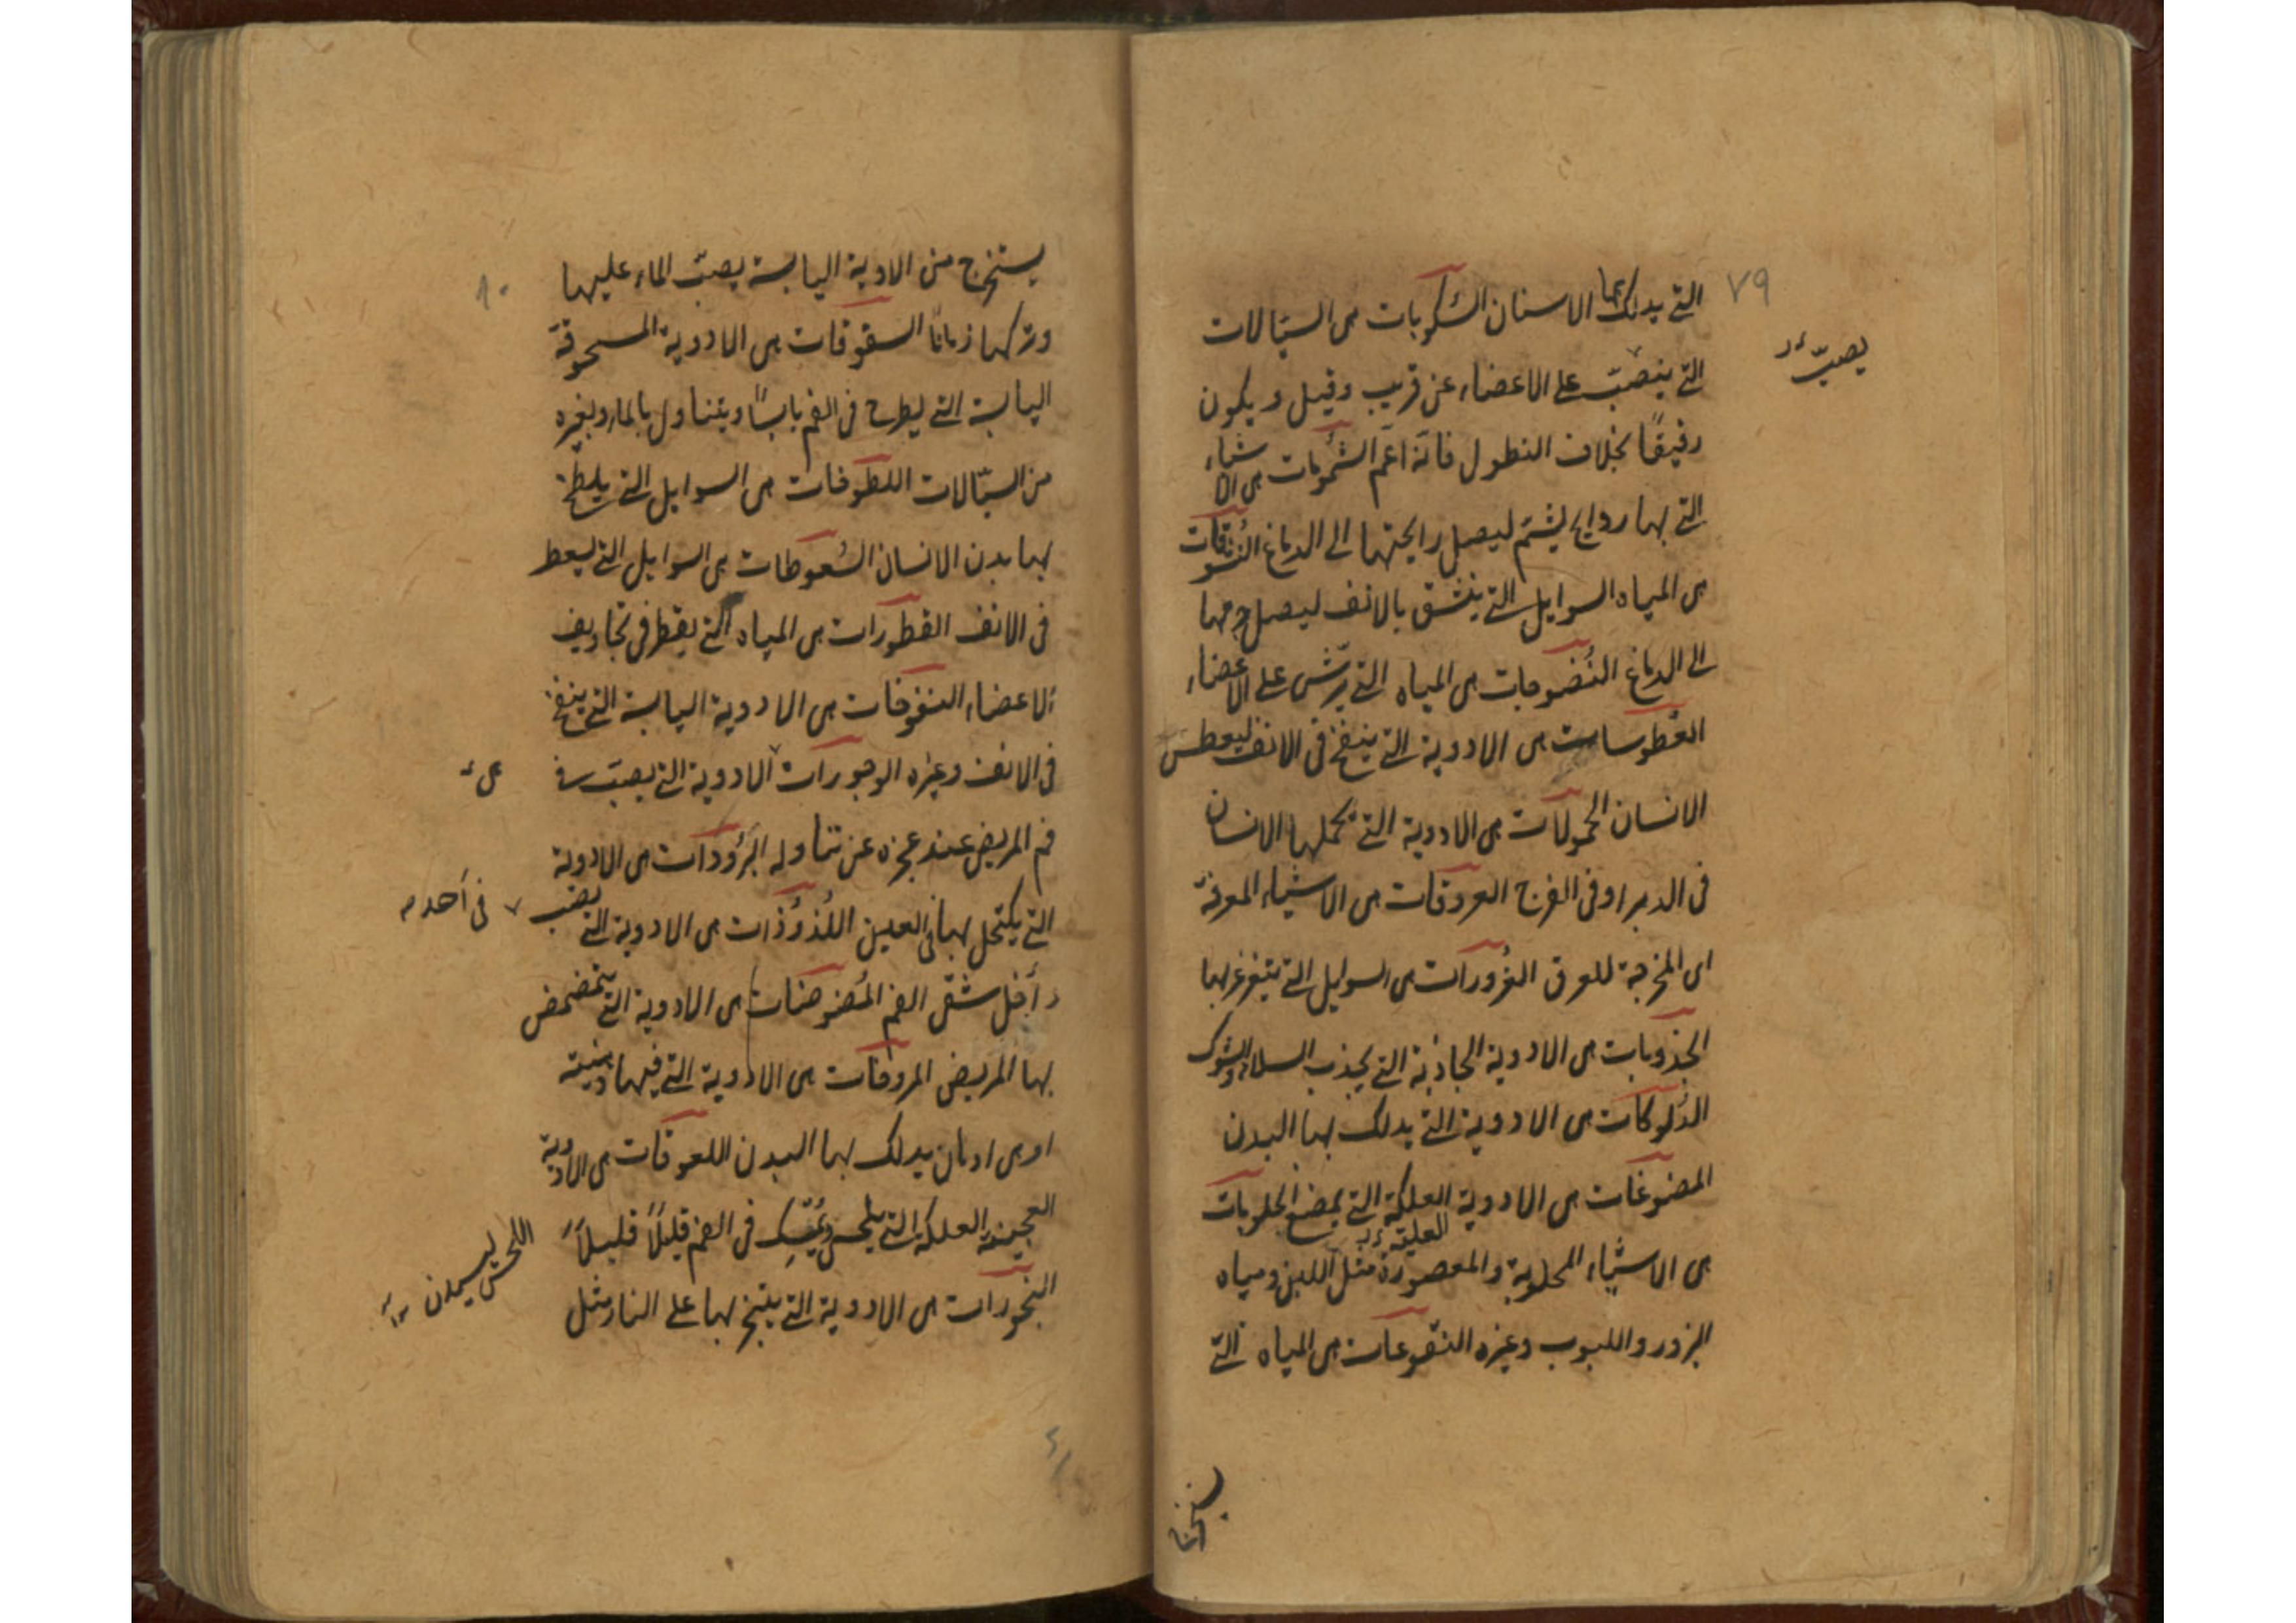 ٧٩
التي يدلك بها الاسنان السكوبات هى السيالات
يصبّ
التي ينصبّ على الاعضاء عن قريب وقيل ويكون
رقيقًا بخلاف النطول فانّه اعّم الشمومات هى الاشياء
التي بها روايح يشتم ليصل رايحتها الى الدماغ النشوقات
هى المياه السوايل التي ينشق بالانف ليصل جرمها
الى الدماغ النضوحات هى المياه التي يرّش على الاعضاء
العطوسات هى الادوية التي ينفخ فى الانف ليعطس
الانسان الحمولات هى الادوية التي يحملها الانسان
فى الدبر او فى الفرج العروقات هى الاشياء المعرقة
اى المخرجة للعرق الغرورات هى السوايل التي يتغرغر بها
الجذوبات هى الادوية الجاذبة التي يجذب السلاء والشوك
الدلوكات هى الادوية التي يدلك بها البدن
المضوغات هى الادوية العلكة التي يمضغ الحلوبات
العليقة
هى الاشياء المحلوبة والمعصورة مثل اللبن ومياه
البزور واللبوب وغيره النقوعات هى المياه التي
يستخرج
٨٠
يستخرج من الادوية اليابسة يصبّ الماء عليها
وتركها زمانًا السفوفات هى الادوية المسحوقة
اليابسة التي يطرح فى الفم يابسًا ويتناول بالماء وبغيره
من السيّالات اللطوخات هى السوايل التي يلطخ
بها بدن الانسان السعوطات هى السوايل التي يسعط
فى الانف القطورات هى المياه التي يقطر فى تجاويف
الاعضاء النفوخات هى الادوية اليابسة التي ينفخ
فى الانف وغيره الوجورات الادوية التي يصبّ فى
هى
فم المريض عند عجزه عن تناوله البرودات هى الادوية
التي يكتحل بها فى العين اللدودات هى الادوية التي يصب
فى أحد
داخل شقى الفم المضوضات هى الادوية التي يتمضمض
بها المريض المروخات هى الادوية التي فيها دهنيته
او هى ادهان يدلك بها البدن اللعوقات هى الادوية
العجينة العلكة التي يلحس ويُمسك فى الفم قليلًا قليلًا
اللحس ليسيدن
البخورات هى الادوية التي يتبخر بها على النار مثل